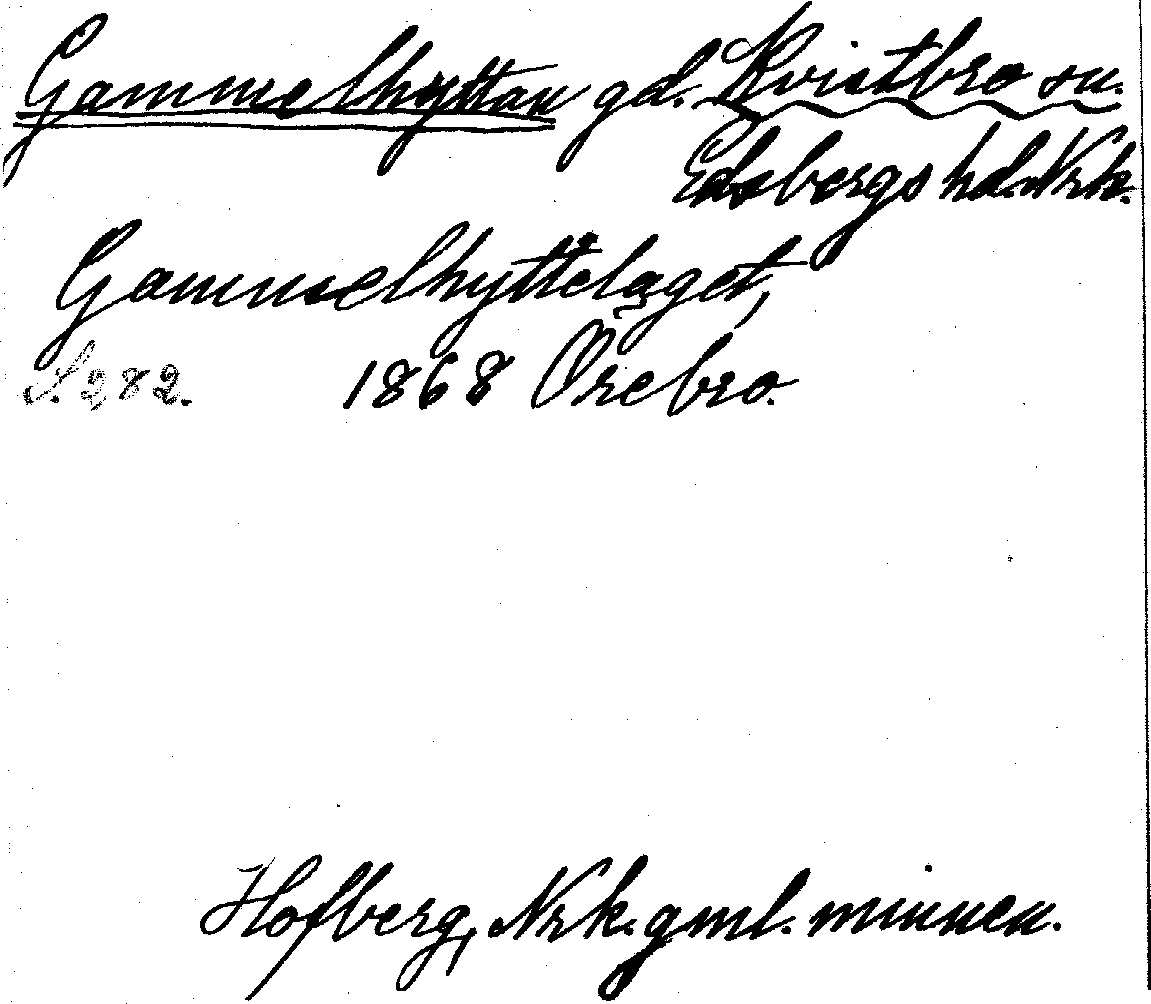 Gammelhyttan gd. Kvistbro sn.
Edsbergs hd. Nrk.
Gammelhyttelaget,
S. 282. 1868 Örebro.
Hofberg, Nrk. gml. minnen.